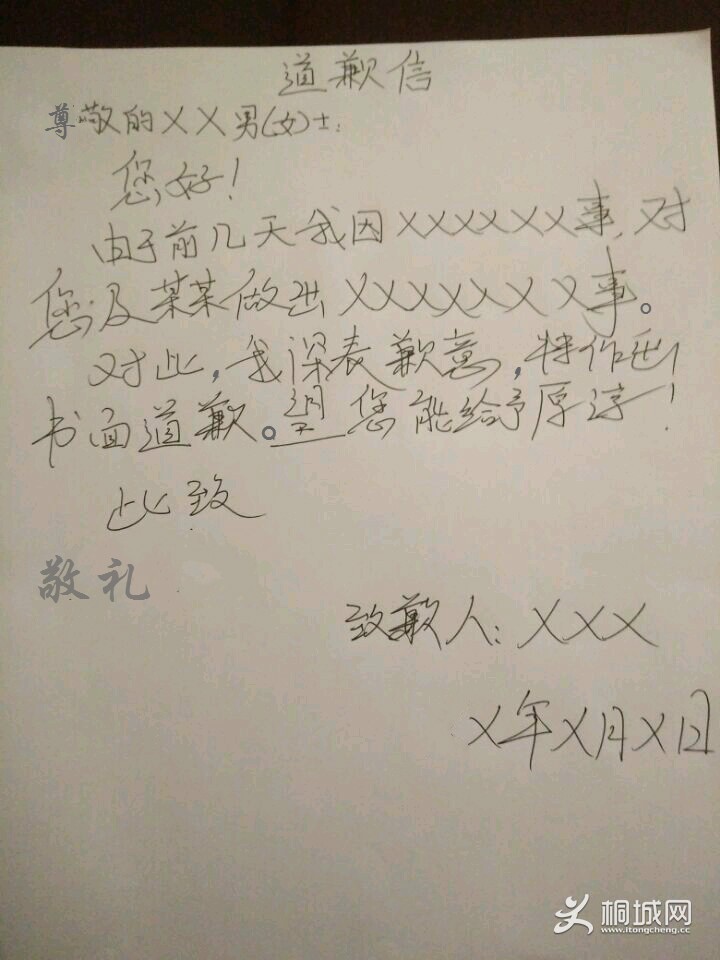 道歉信
尊敬的XX男(女)士:
您好!
由于前几天我因XXXXXX事,对
您及某某做出XXXXXXX事。
对此,我深表歉意,特作出
书面道歉。望您能给予厚谅!
此致
敬礼
致歉人:XXX
X年X月X日
桐城网
www.itongcheng.cc